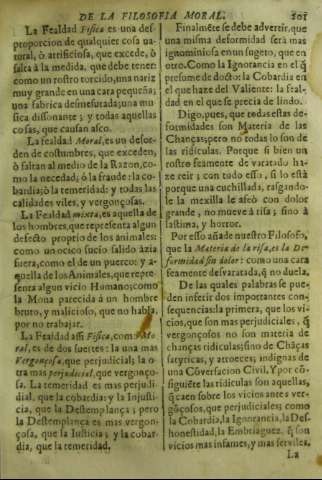 DE LA FILOSOFIA MORAL. 201
La Fealdad Fisica es una des-
proporcion de qualquier cosa na-
tural, ò artificiosa, que excede, ò
falta à la medida, que debe tener:
como un rostro torcido, una nariz
muy grande en una cara pequeña;
una fabrica desmesurada; una mu-
sica dissonante; y todas aquellas
cosas, que causan asco.
La fealdad Moral, es un desor-
den de costumbres, que exceden,
ò faltan al medio de la Razon, co-
mo la necedad, ò la fraude: la co-
bardia; ò la temeridad: y todas las
calidades viles, y vergonçosas.
La Fealdad mixta, es aquella de
los hombres, que representa algun
defecto proprio de los animales:
como un ocico sucio salido àzia
fuera, como el de un puerco: y a-
quella de los Animales, que repre-
senta algun vicio Humano; como
la Mona parecida à un hombre
bruto, y malicioso, que no habla,
por no trabajar.
La Fealdad assi Fisica, como Mo-
ral, es de dos suertes: la una mas
Vergonçosa, que perjudicial; la o-
tra mas perjudicial, que vergonço-
sa. La temeridad es mas perjudi-
dial, que la cobardia: y la Injusti-
cia, que la Destemplança; pero
la Destemplança es mas vergon-
çosa, que la Iusticia; y la cobar-
dia, que la temeridad.
Finalmẽte se debe advertir, que
una misma deformidad serà mas
ignominiosa en un sugeto, que en
otro. Como la Ignorancia en el q̃
presome de docto: la Cobardia en
el que haze del Valiente: la feal-
dad en el que se precia de lindo.
Digo, pues, que todas estas de-
formidades son Materia de las
Chanças; pero no todas lo son de
las ridiculas. Porque si bien un
rostro feamente de varatado ha-
ze reir; con todo esso, si lo està
porque una cuchillada, rasgando-
le la mexilla le afeò con dolor
grande, no mueve à risa; sino à
lastima, y horror.
Por esso añade nuestro Filosofo,
que la Materia de la risa, es la De-
formidad sin dolor: como una cara
feamente desvaratada, q̃ no duela.
De las quales palabras se pue-
den inferir dos importantes con-
sequencias: la primera, que los vi-
cios, que son mas perjudiciales, q̃
vergonçosos no son materia de
chanças ridiculas; sino de Chãças
satyricas, y atroces; indignas de
una Cõversacion Civil. Y por cõ-
siguiẽte las ridiculas son aquellas,
q̃ caen sobre los vicios antes ver-
gõçosos, que perjudiciales; como
la Cobardia, la Ignorancia, la Des-
honestidad, la Embriaguez, q̃ son
vicios mas infames, y mas serviles.
La